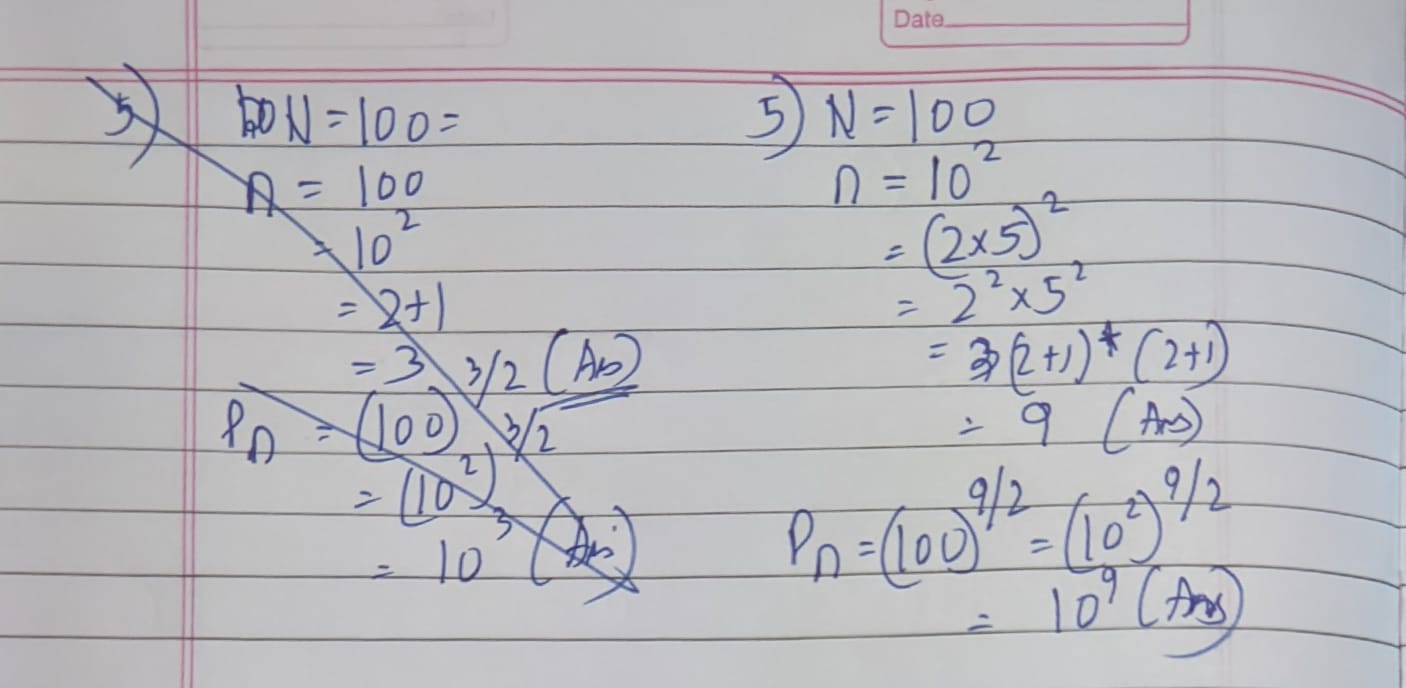 Date
5) N = 100 =
n = 100
= 10²
= 2+1
= 3 3/2 (Ans)
Pn = (100) 3/2
= (10²)
= 10³ (Ans)
5) N = 100
n = 10²
= (2×5)²
= 2² × 5²
= (2+1) * (2+1)
= 9 (Ans)
Pn = (100)^9/2 = (10²)^9/2
= 10⁹ (Ans)